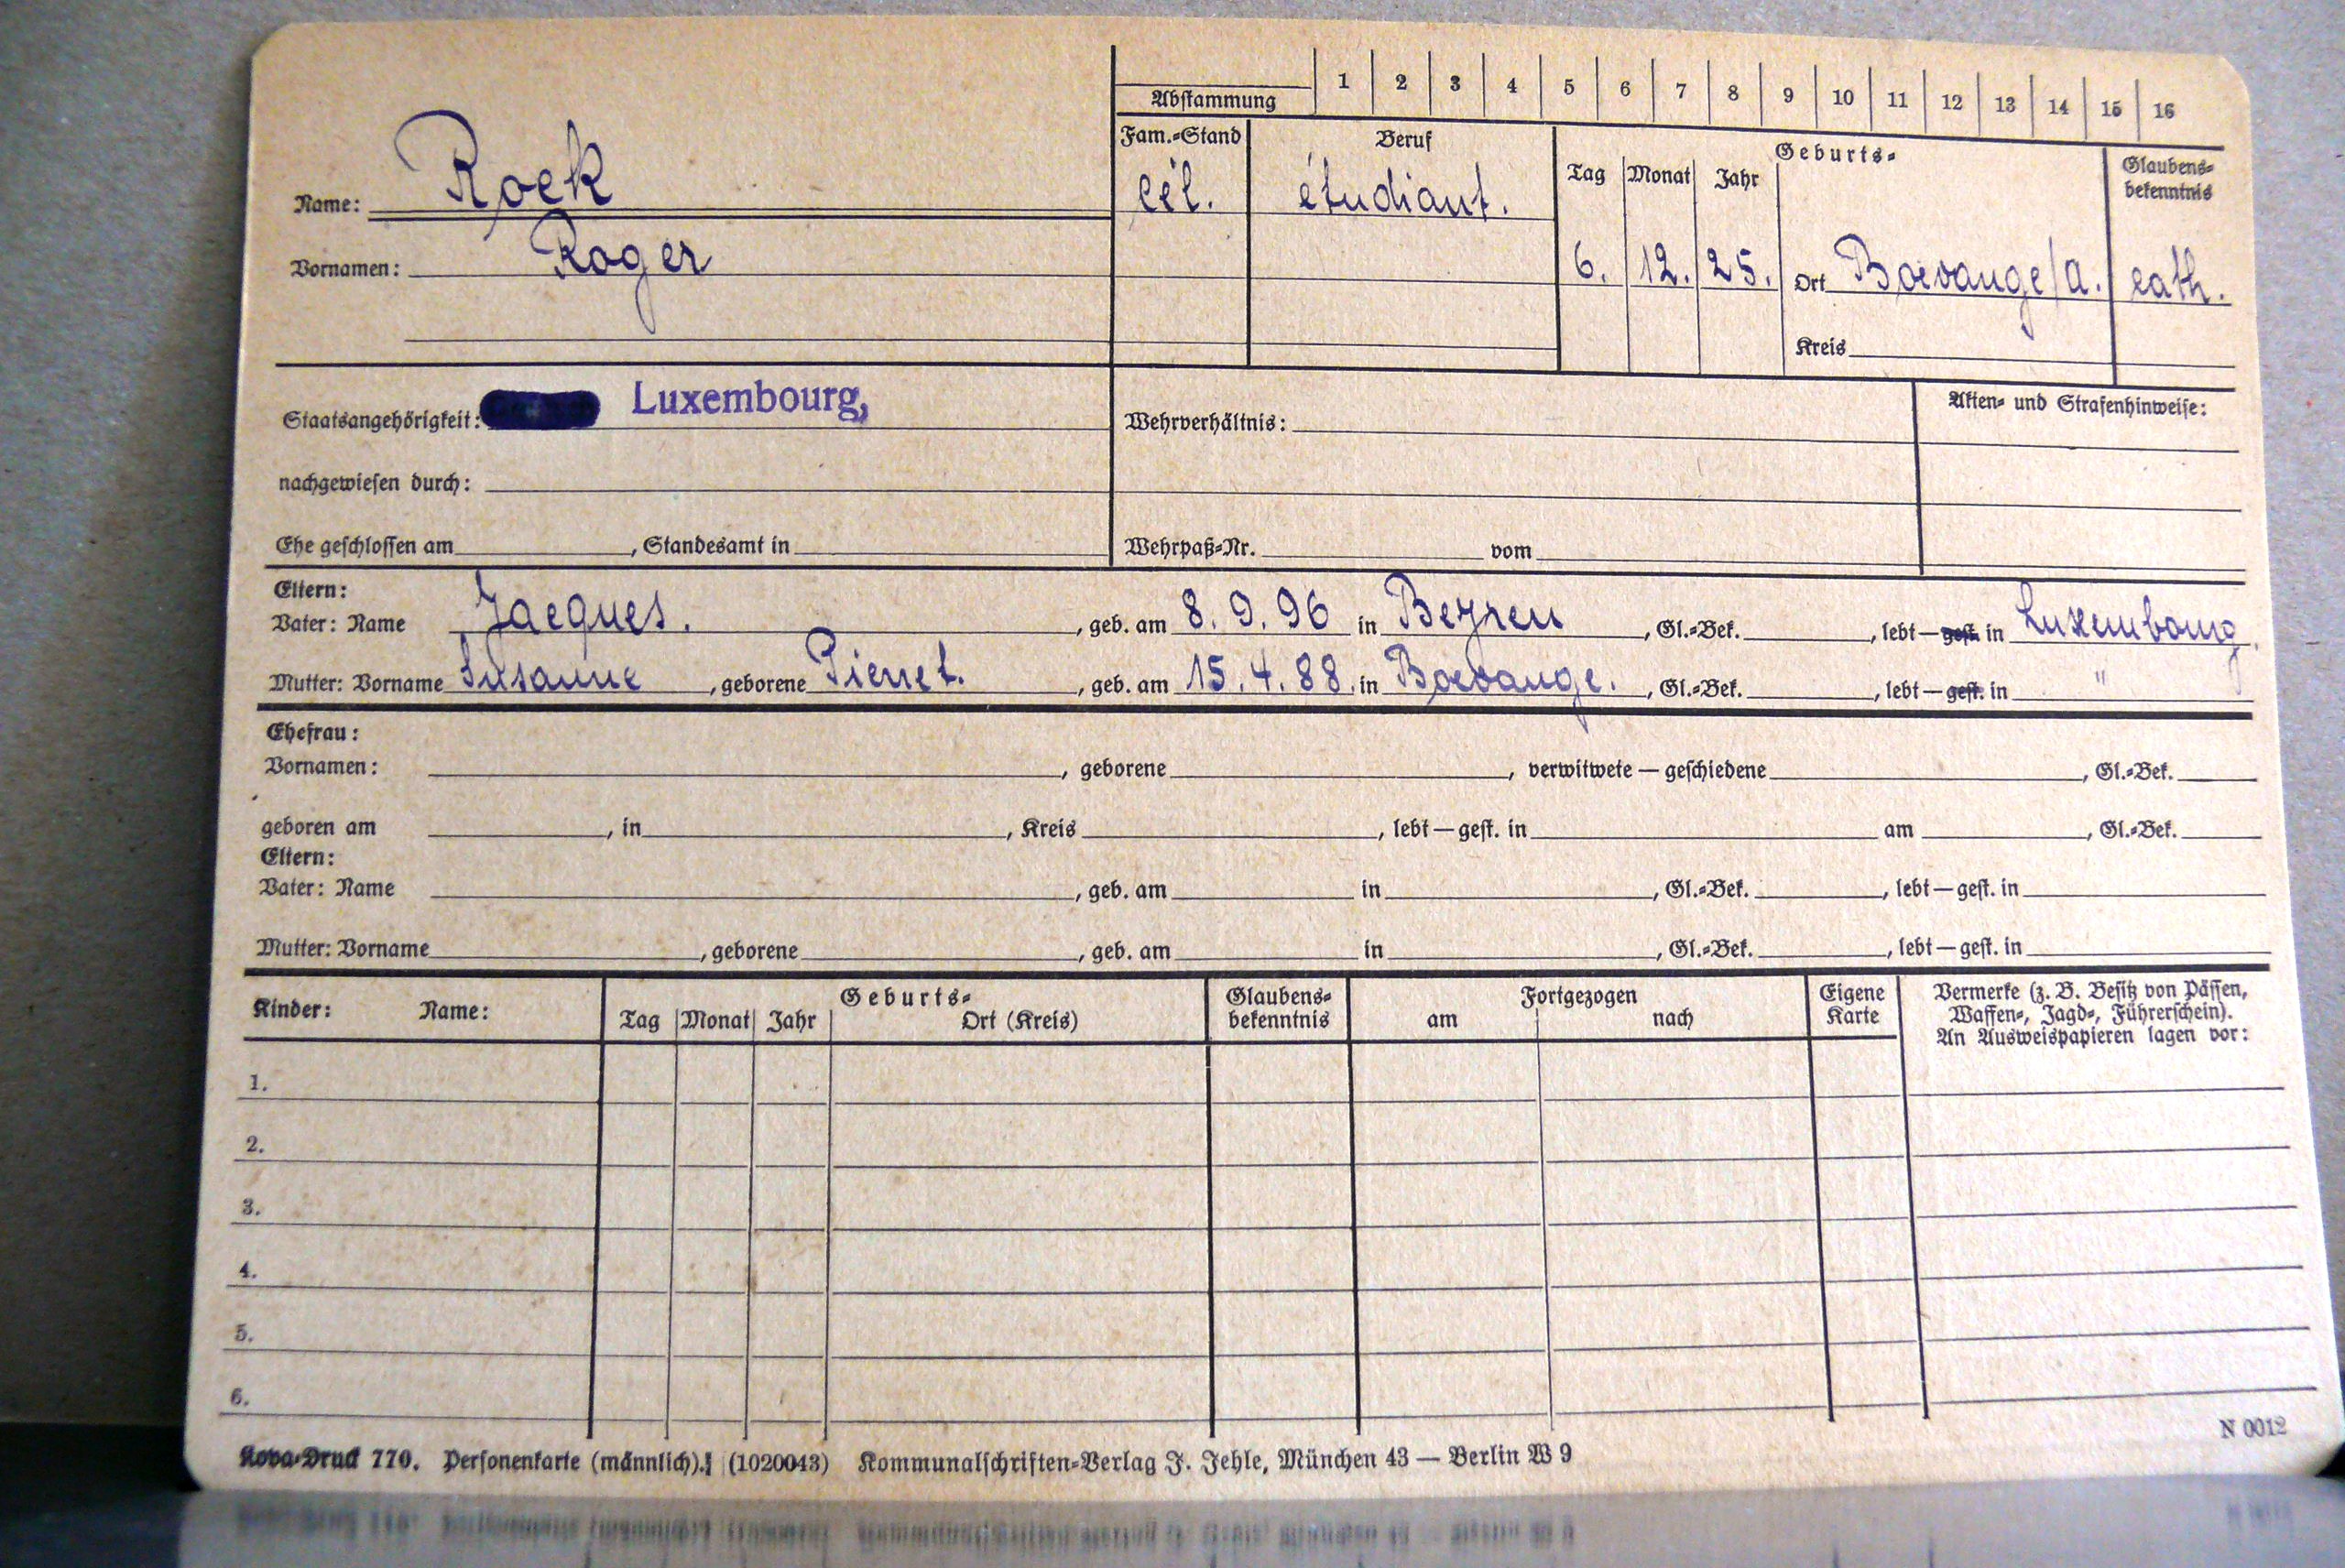 Abstammung 1 2 3 4 5 6 7 8 9 10 11 12 13 14 15 16
Fam.-Stand Beruf Geburts- Glaubens-
Tag Monat Jahr bekenntnis
Name: Rock cél. étudiant.
Vornamen: Roger 6. 12. 25. Ort Boevange/A. cath.
Kreis
Staatsangehörigkeit: Luxembourg, Wehrverhältnis: Akten- und Strafenhinweise:
nachgewiesen durch:
Ehe geschlossen am , Standesamt in Wehrpaß-Nr. vom
Eltern:
Vater: Name Jacques. , geb. am 8. 9. 96 in Beyren , Gl.-Bek. , lebt — gest. in Luxembourg
Mutter: Vorname Susanne , geborene Pierret. , geb. am 15. 4. 88. in Boevange. , Gl.-Bek. , lebt — gest. in "
Ehefrau:
Vornamen: , geborene , verwitwete — geschiedene , Gl.-Bek.
geboren am , in , Kreis , lebt — gest. in am , Gl.-Bek.
Eltern:
Vater: Name , geb. am in , Gl.-Bek. , lebt — gest. in
Mutter: Vorname , geborene , geb. am in , Gl.-Bek. , lebt — gest. in
Kinder: Name: Geburts- Glaubens- Fortgezogen Eigene Vermerke (z. B. Besitz von Pässen,
Tag Monat Jahr Ort (Kreis) bekenntnis am nach Karte Waffen-, Jagd-, Führerschein).
An Ausweispapieren lagen vor:
1.
2.
3.
4.
5.
6.
N 0012
Kova-Druck 770. Personenkarte (männlich). (1020043) Kommunalschriften-Verlag J. Jehle, München 43 — Berlin W 9